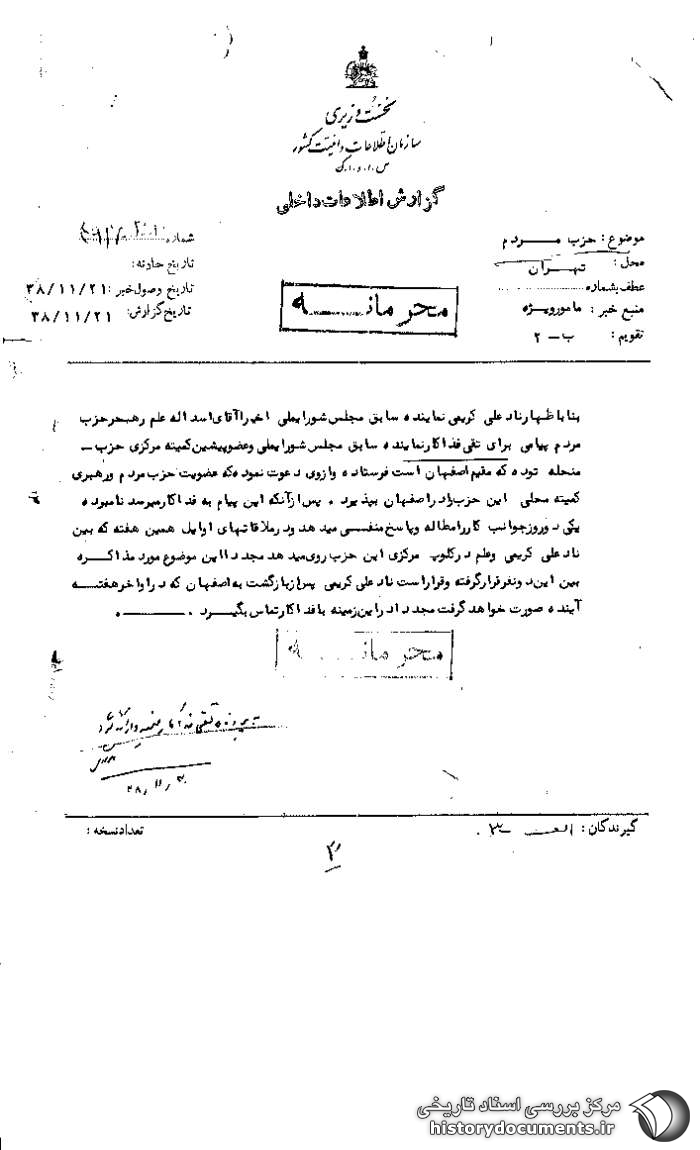 نخست وزیری
سازمان اطلاعات و امنیت کشور
س.ا.و.ا.ک
گزارش اطلاعات داخلی
موضوع: حزب مردم
محل: تهران
عطف بشماره
منبع خبر: مامورویژه
تقویم: ب-۲
شماره
تاریخ حادثه:
تاریخ وصول خبر: ۳۸/۱۱/۲۱
تاریخ گزارش: ۳۸/۱۱/۲۱
محرمانه
بنا باظهار نادعلی کریمی نماینده سابق مجلس شورایملی اخیرا آقای اسداله علم رهبر حزب
مردم پیامی برای تقی فداکار نماینده سابق مجلس شورایملی و عضو پیشین کمیته مرکزی حزب-
منحله توده که مقیم اصفهان است فرستاده و از وی دعوت نموده که عضویت حزب مردم و رهبری
کمیته محلی این حزب را در اصفهان بپذیرد. پس از آنکه این پیام به فداکار میرسد نامبرده
یکی دو روز جوانب کار را مطالعه و پاسخ منفی میدهد و در ملاقاتهای اوایل همین هفته که بین
نادعلی کریمی و علم در کلوپ مرکزی این حزب روی میدهد مجددا این موضوع مورد مذاکره
بین این دو نفر قرار گرفته و قرار است نادعلی کریمی پس از بازگشت به اصفهان که در اواخر هفته
آینده صورت خواهد گرفت مجددا در این زمینه با فداکار تماس بگیرد.
محرمانه
تقی
گیرندگان:
تعداد نسخه:
مرکز بررسی اسناد تاریخی
historydocuments.ir